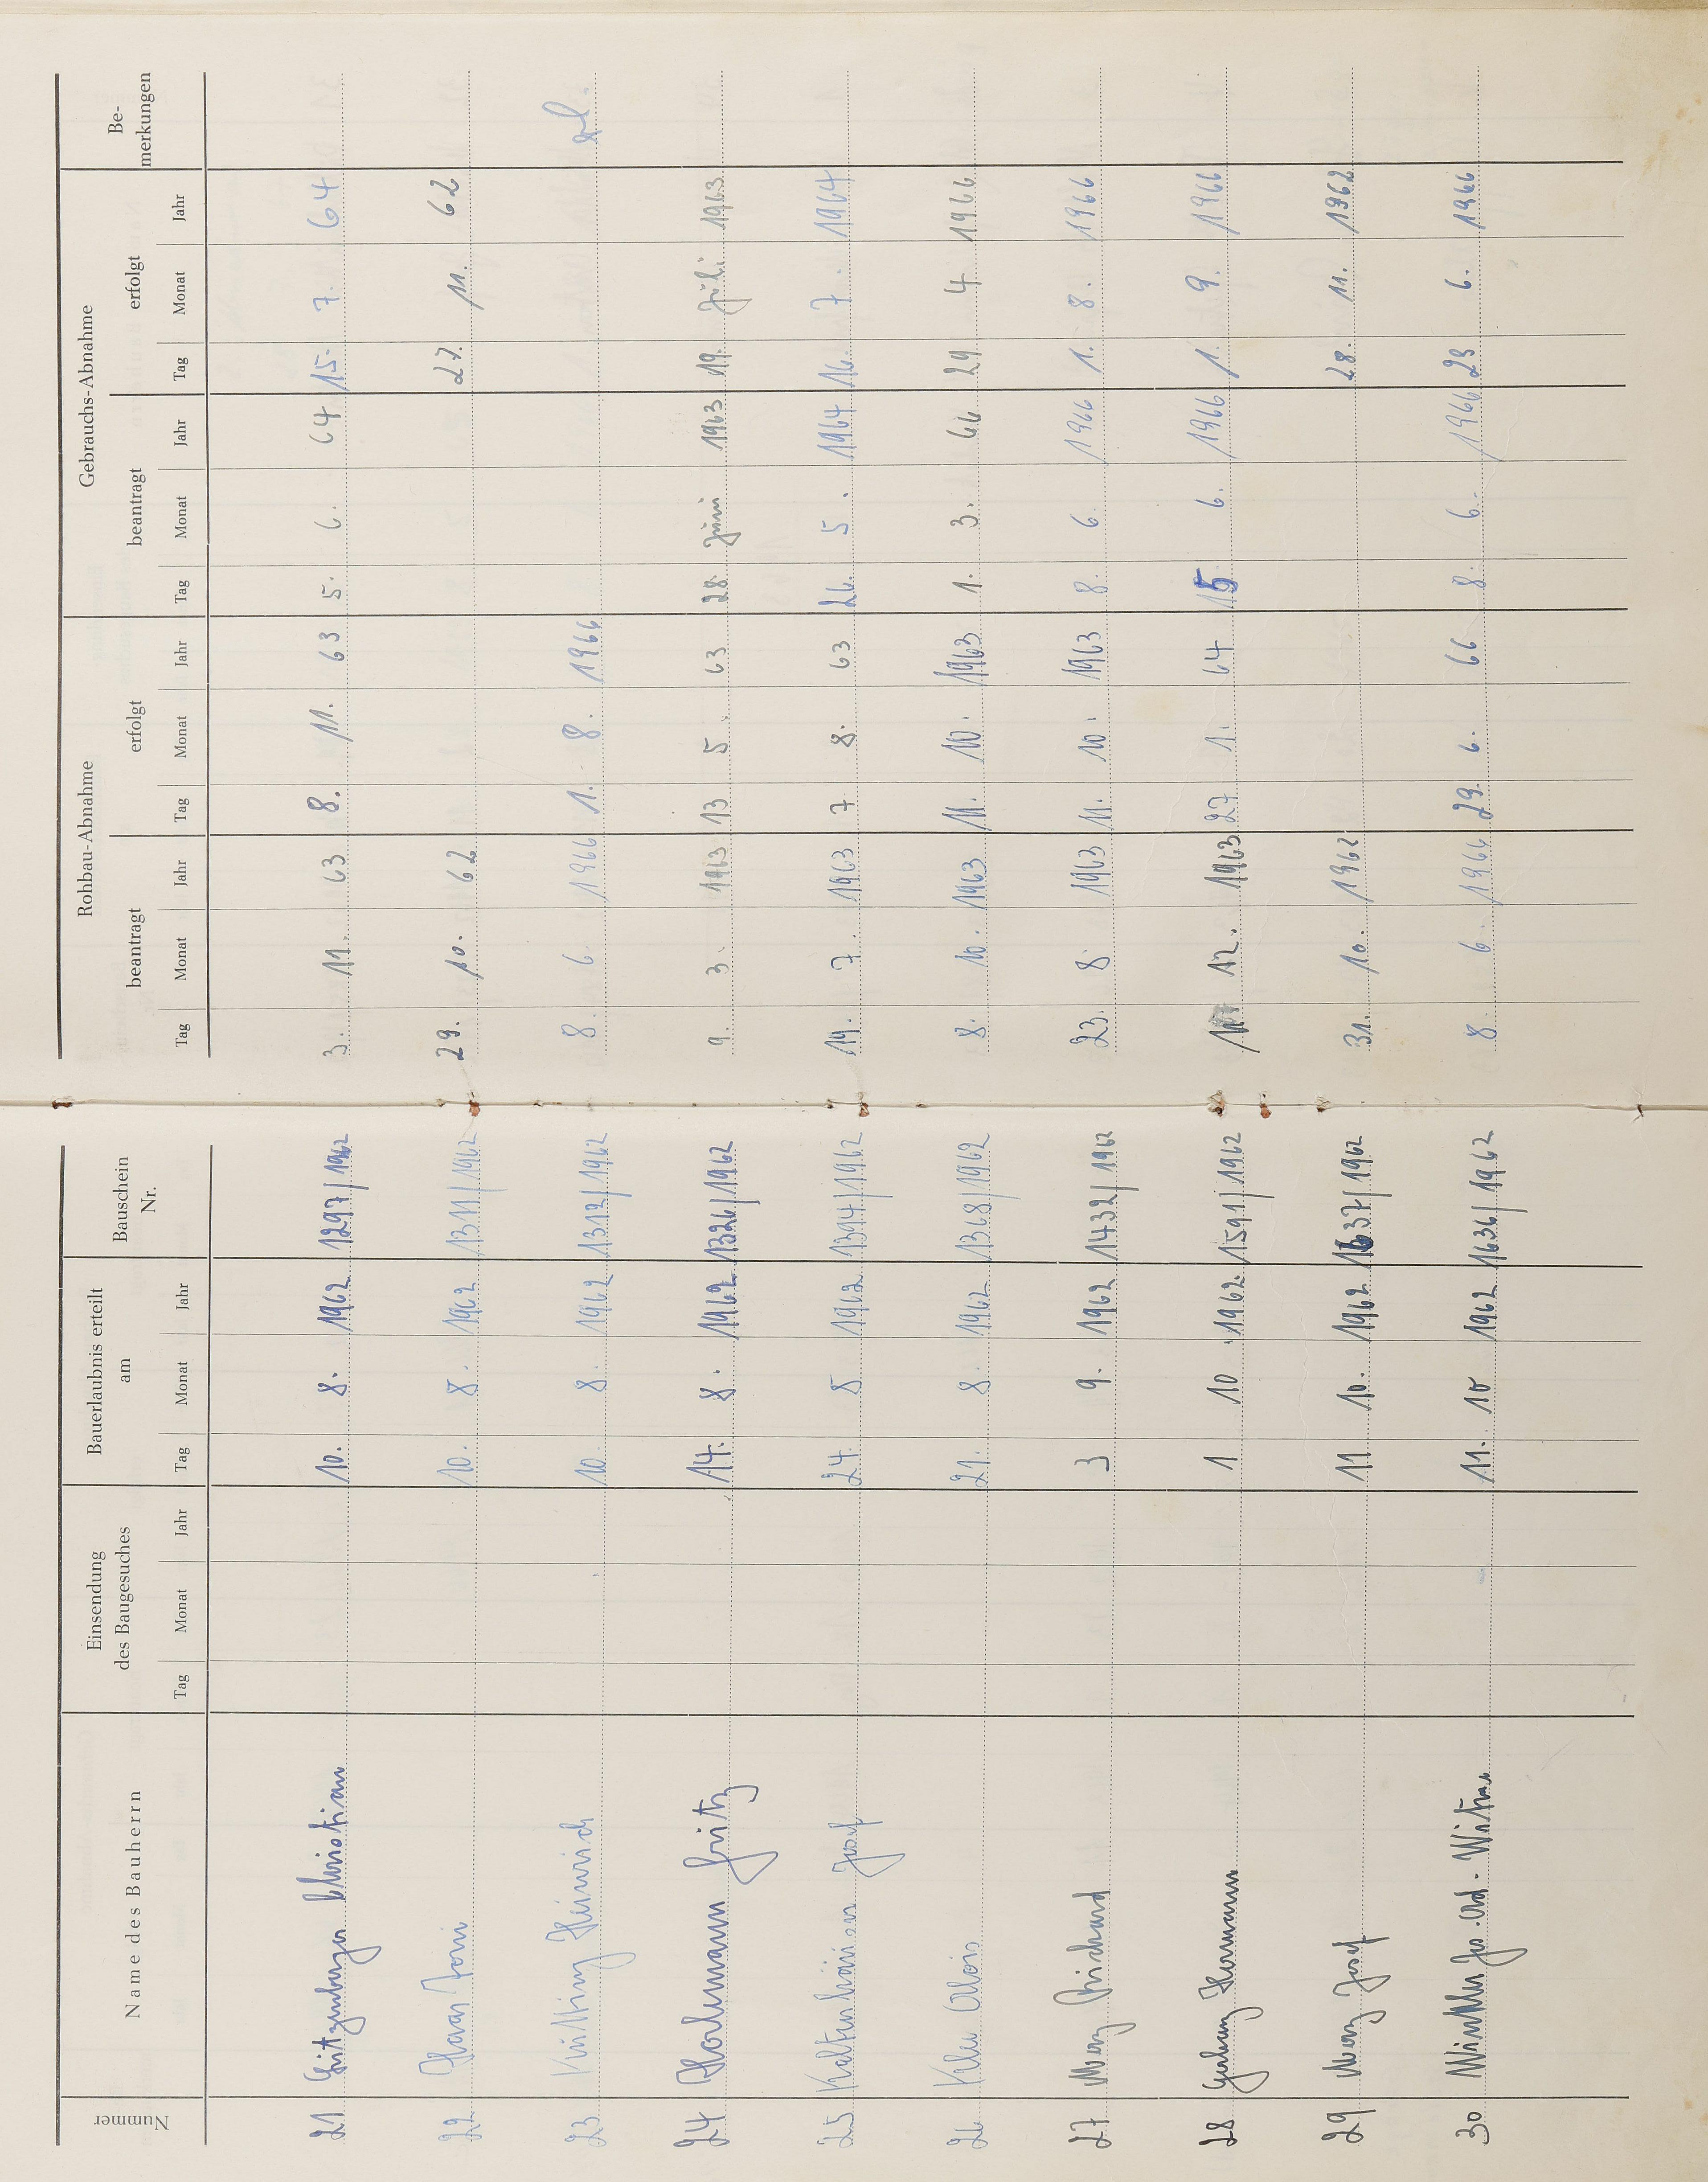 Nummer Name des Bauherrn Einsendung des Baugesuches Bauerlaubnis erteilt am Bauschein Nr. Rohbau-Abnahme Gebrauchs-Abnahme Be-merkungen
beantragt erfolgt beantragt erfolgt
Tag Monat Jahr Tag Monat Jahr Tag Monat Jahr Tag Monat Jahr Tag Monat Jahr Tag Monat Jahr
21 Christian 10. 8. 1962 1297/1962 3. 11. 63 8. 11. 63 5. 6. 64 15. 7. 64
22 Toni 10. 8. 1962 1311/1962 29. 10. 62 27. 11. 62
23 Heinrich 10. 8. 1962 1312/1962 8. 6. 1966 1. 8. 1966
24 Fritz 14. 8. 1962 1326/1962 9. 3. 1963 13 5. 63 28. Juni 1963 19. Juli 1963
25 Kaltenhäuser Josef 24. 8 1962 1394/1962 19. 7. 1963 7 8. 63 26. 5. 1964 16. 7. 1964
26 Alois 21. 8. 1962 1368/1962 8. 10. 1963 11. 10. 1963 1. 3. 66 29 4. 1966
27 Merz Richard 3 9. 1962 1432/1962 23. 8. 1963 11. 10. 1963 8. 6. 1966 1. 8. 1966
28 Hermann 1 10 1962. 1591/1962 12. 1963 27 1. 64 15. 6. 1966 1. 9. 1966
29 Merz Josef 11 10. 1962 1637/1962 31. 10. 1962 28. 11. 1962
30 Winkler Jos. Ad. Witwe 11. 10 1962 1636/1962 8. 6. 1966 29. 6. 66 8. 6. 1966 23 6. 1966